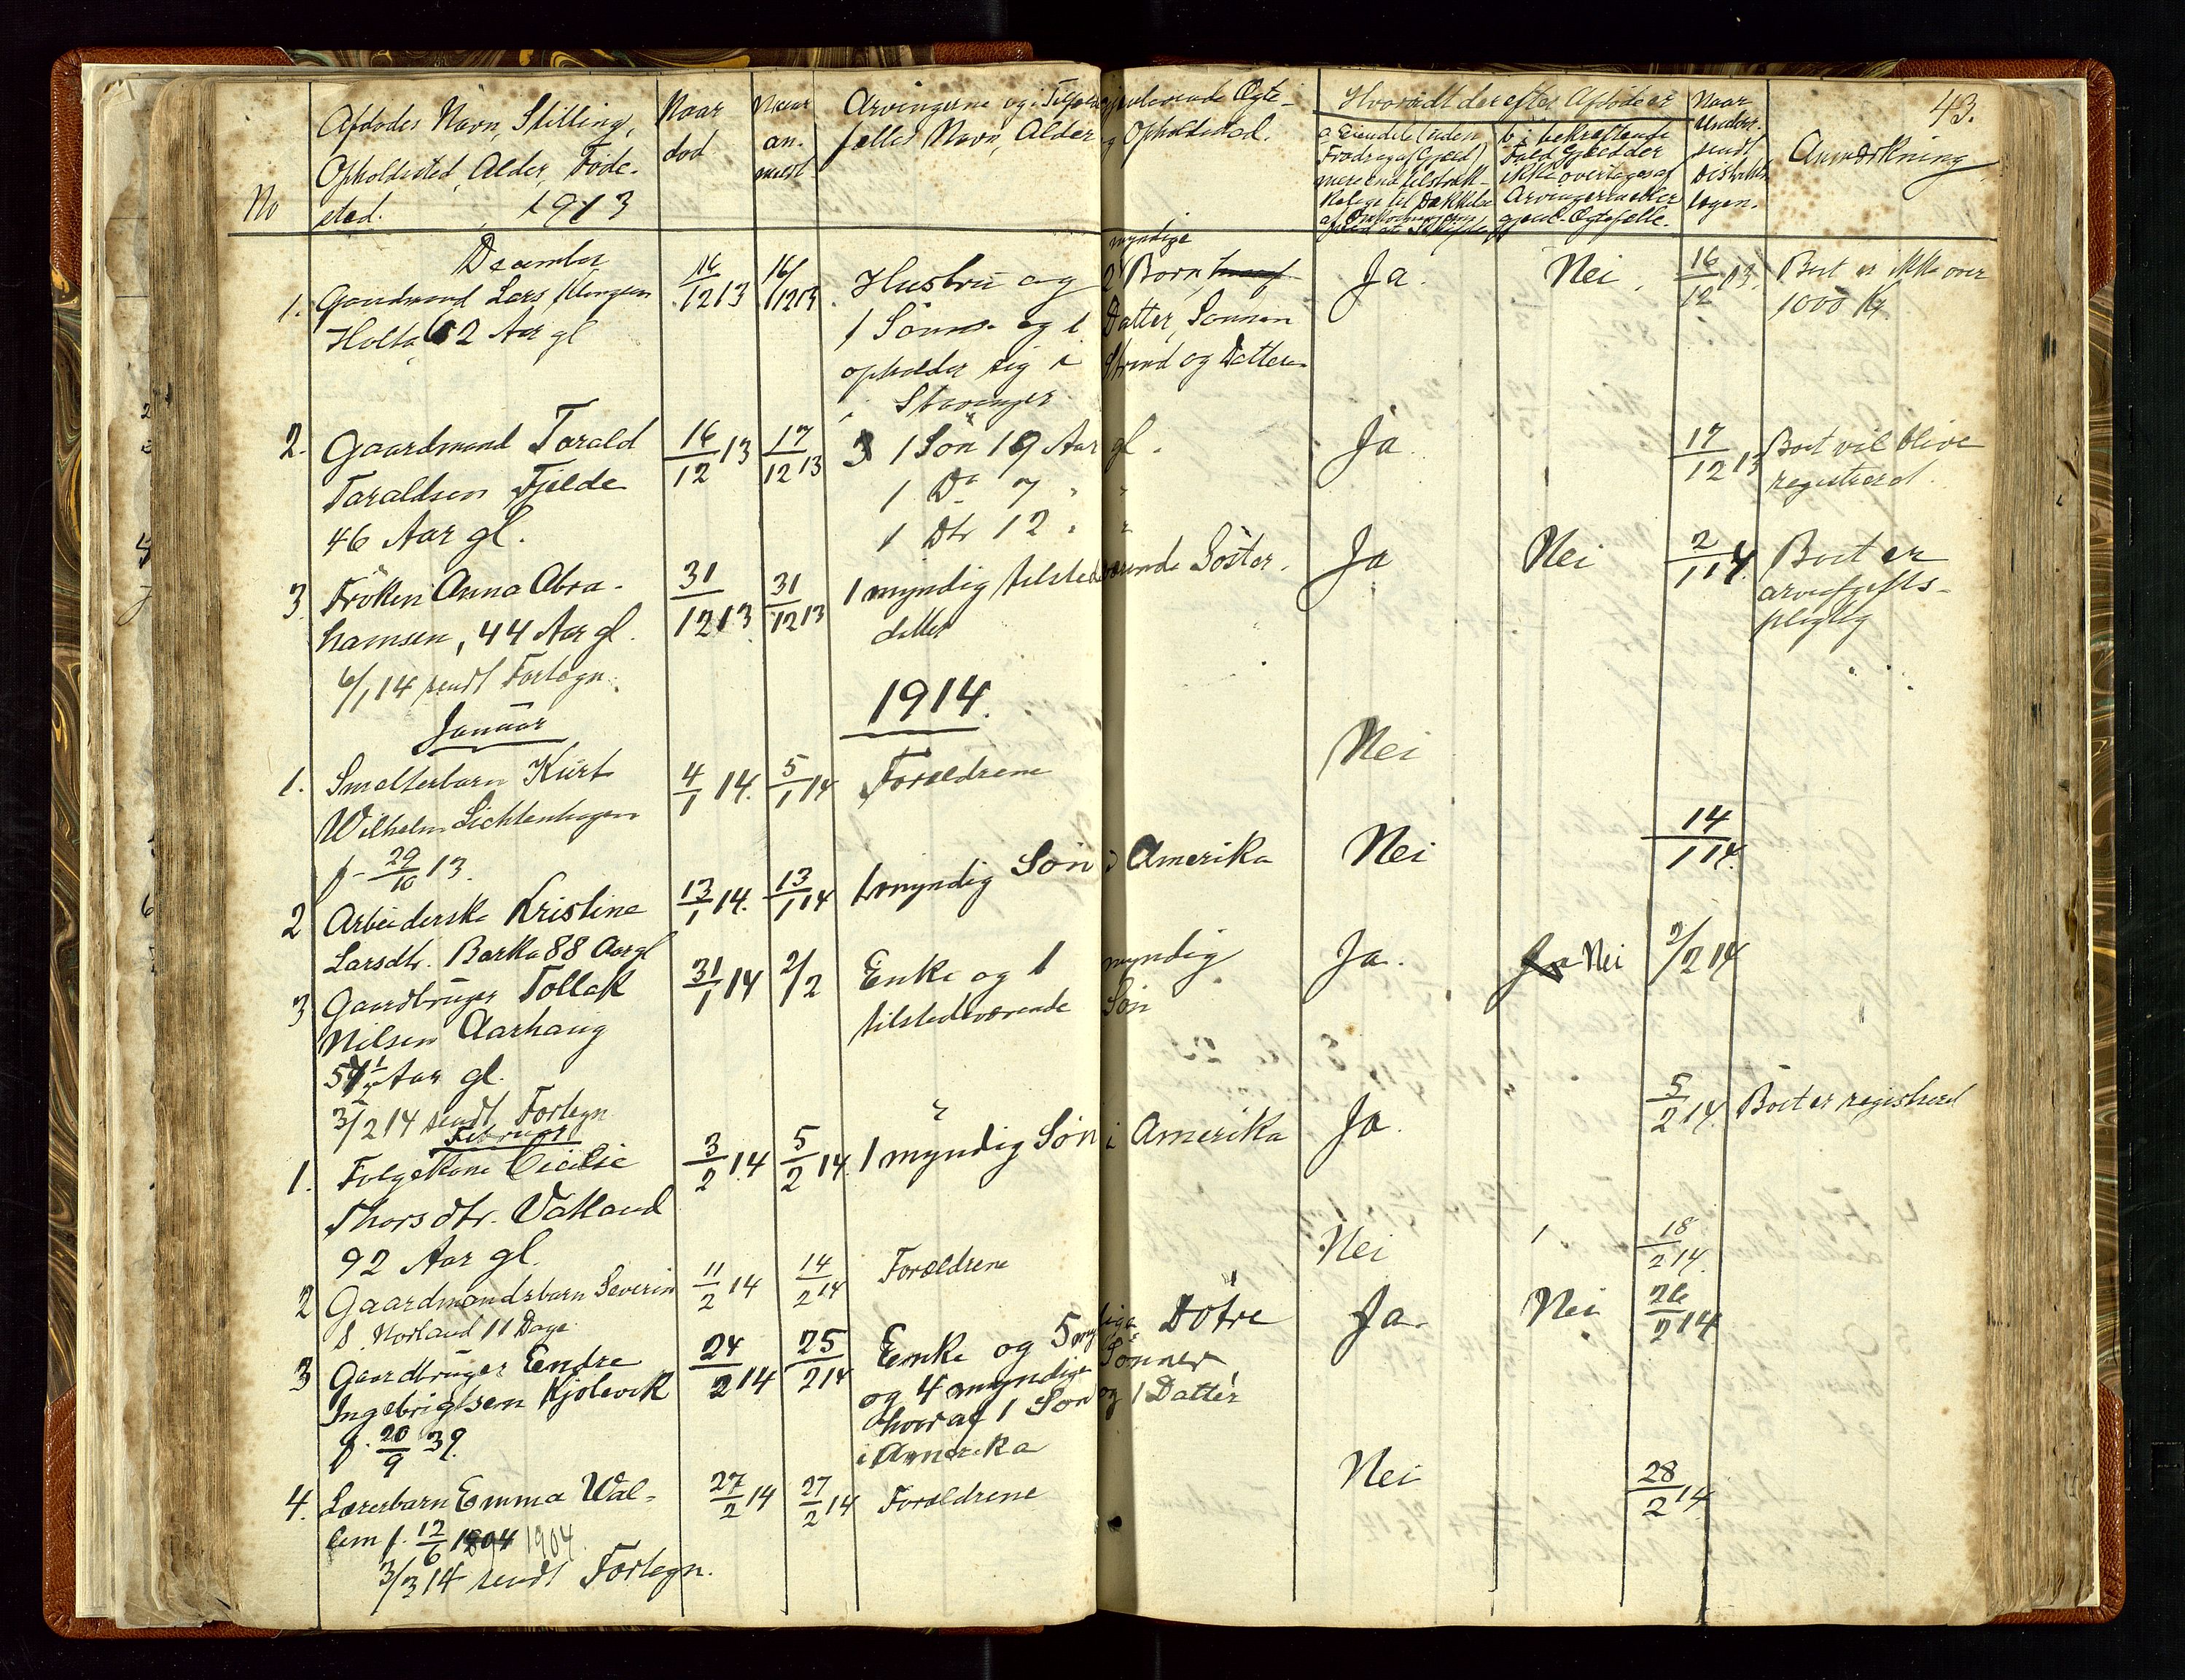 43.
No
Afdødes Navn, Stilling,
Opholdssted, Alder, Føde-
sted. 1913
Naar
død
Naar
an-
meldt
Arvingerne og i Tilfælde gjenlevende Ægte-
fælles Navn, Alder og Opholdssted.
Hvorvidt der efter Afdøde er
a. Eiendele (uden
Fradrag af Gjæld)
mere end tilstræk-
kelige til Dækkelse
b. i bekræftende
Fald Gjæld der
ikke overtages af
Arvingerne eller
gjenl. Ægtefælle.
Naar
Under-
sendt
Anmærkning
December
1. Gaardmand Lars
Holta 62 Aar gl
16/12 13
16/12 13
Hustru og 2 myndige Børn,
1 Sønn og 1 Datter, Sønnen
opholder sig i Strand og Datteren
i Stavanger
Ja.
Nei
16/12 13
Boet er ikke over
1000 Kr.
2. Gaardmand Torald
Toraldsen Fjelde
46 Aar gl.
16/12 13
17/12 13
3 1 Søn 19 Aar gl.
1 Do 7 " "
1 Dtr 12 " "
Ja
17/12 13
Boet vil blive
registrerd.
3. Frøken Anna Abra-
hamsen, 44 Aar gl.
6/1 14 sendt Fortegn.
31/12 13
31/12 13
1 myndig tilstedeværende Søster.
Ja
Nei
2/1 14
Boet er
arveafgifts-
pligtig
1914.
Januar
1. Smelterbarn Kurt
Wilhelm Lichtenhagen
f. 29/10 13.
4/1 14.
5/1 14
Forældrene
Nei
2 Arbeiderske Kristine
Larsdtr. Barka 88 Aar gl
13/1 14.
13/1 14
1 myndig Søn i Amerika
Nei
14/1 14.
3 Gaardbruger Tollak
Nilsen Aarhaug
Aar gl.
3/2 14 sendt Fortegn
31/1 14
2/2
Enke og 1 myndig
tilstedeværende Søn
Ja.
Ja Nei
2/2 14
Februar
1. Folgekone Cicilie
Thorsdtr. Vatland
92 Aar gl.
3/2 14
5/2 14.
1 myndig Søn i Amerika
Ja.
5/2 14.
Boet er registrerd
2 Gaardmandsbarn Severin
S. Norland 11 Dage
11/2 14
14/2 14
Forældrene
Nei
18/2 14.
3 Gaardbruger Endre
Ingebrigtsen Kjølevik
f. 20/9 39.
24/2 14
25/2 14
Enke og 5 myndige Døtre
og 4 myndige Sønner
hvoraf 1 Søn og 1 Datter
i Amerika
Ja.
Nei
26/2 14
4. Lærerbarn Emma Wal-
lem f. 12/6 1804 1904.
3/3 14 sendt Fortegn.
27/2 14
27/2 14
Forældrene
Nei
28/2 14.